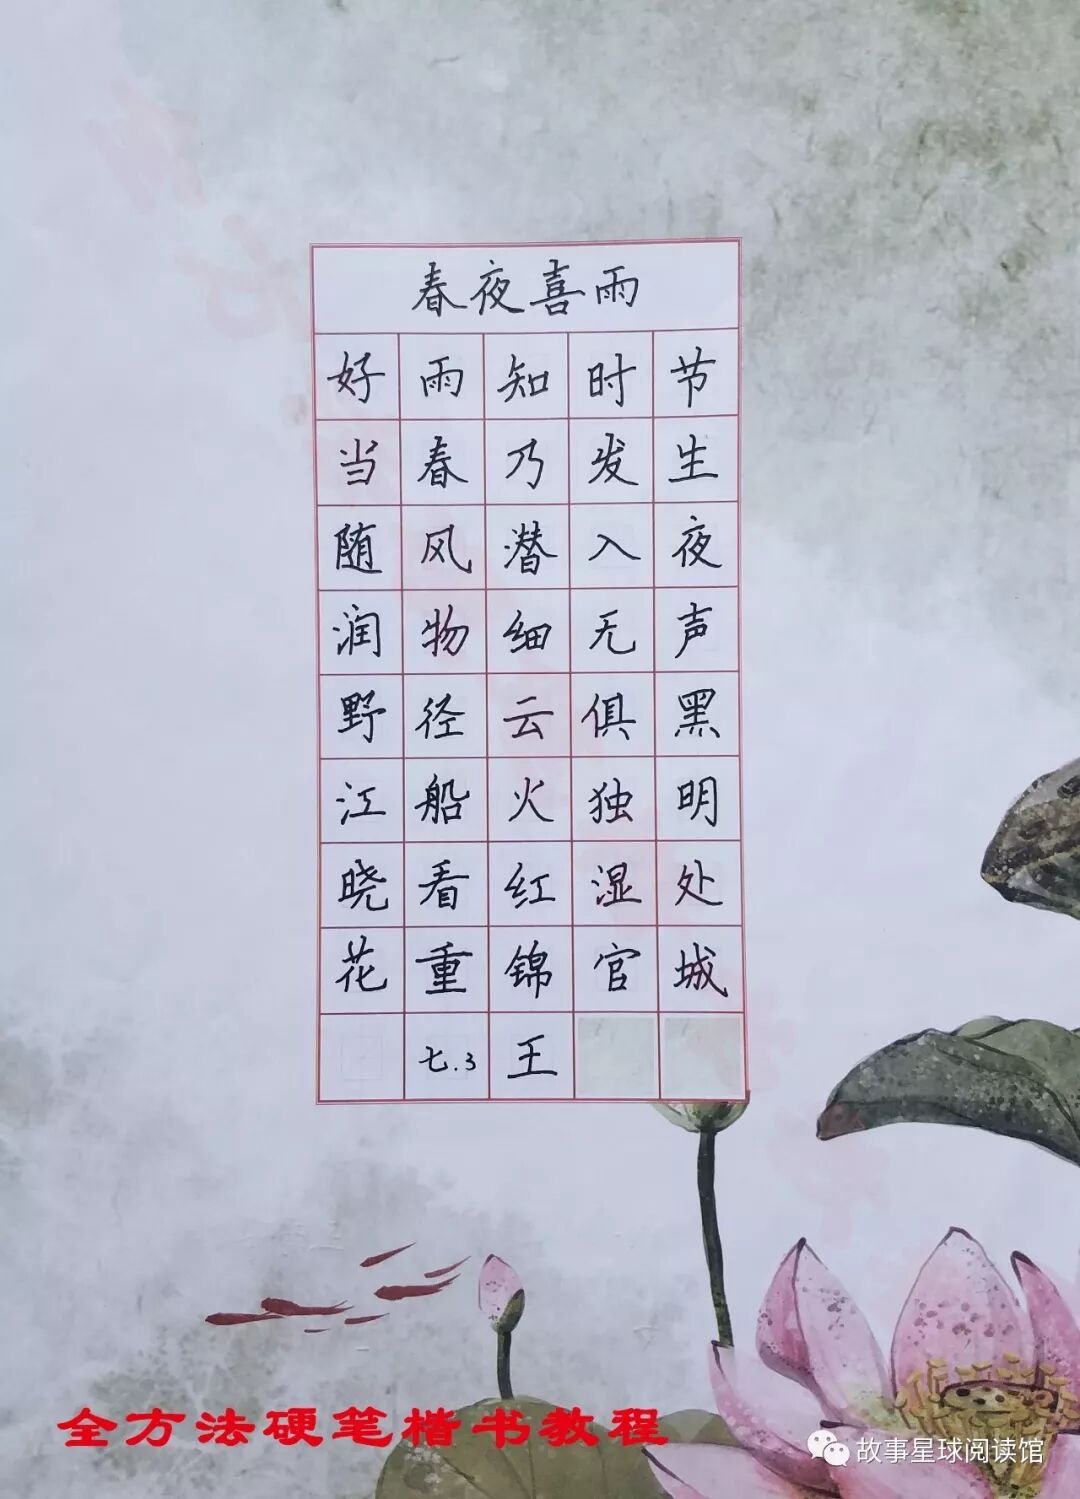 春夜喜雨
好雨知时节
当春乃发生
随风潜入夜
润物细无声
野径云俱黑
江船火独明
晓看红湿处
花重锦官城
七.3王
全方法硬笔楷书教程
故事星球阅读馆